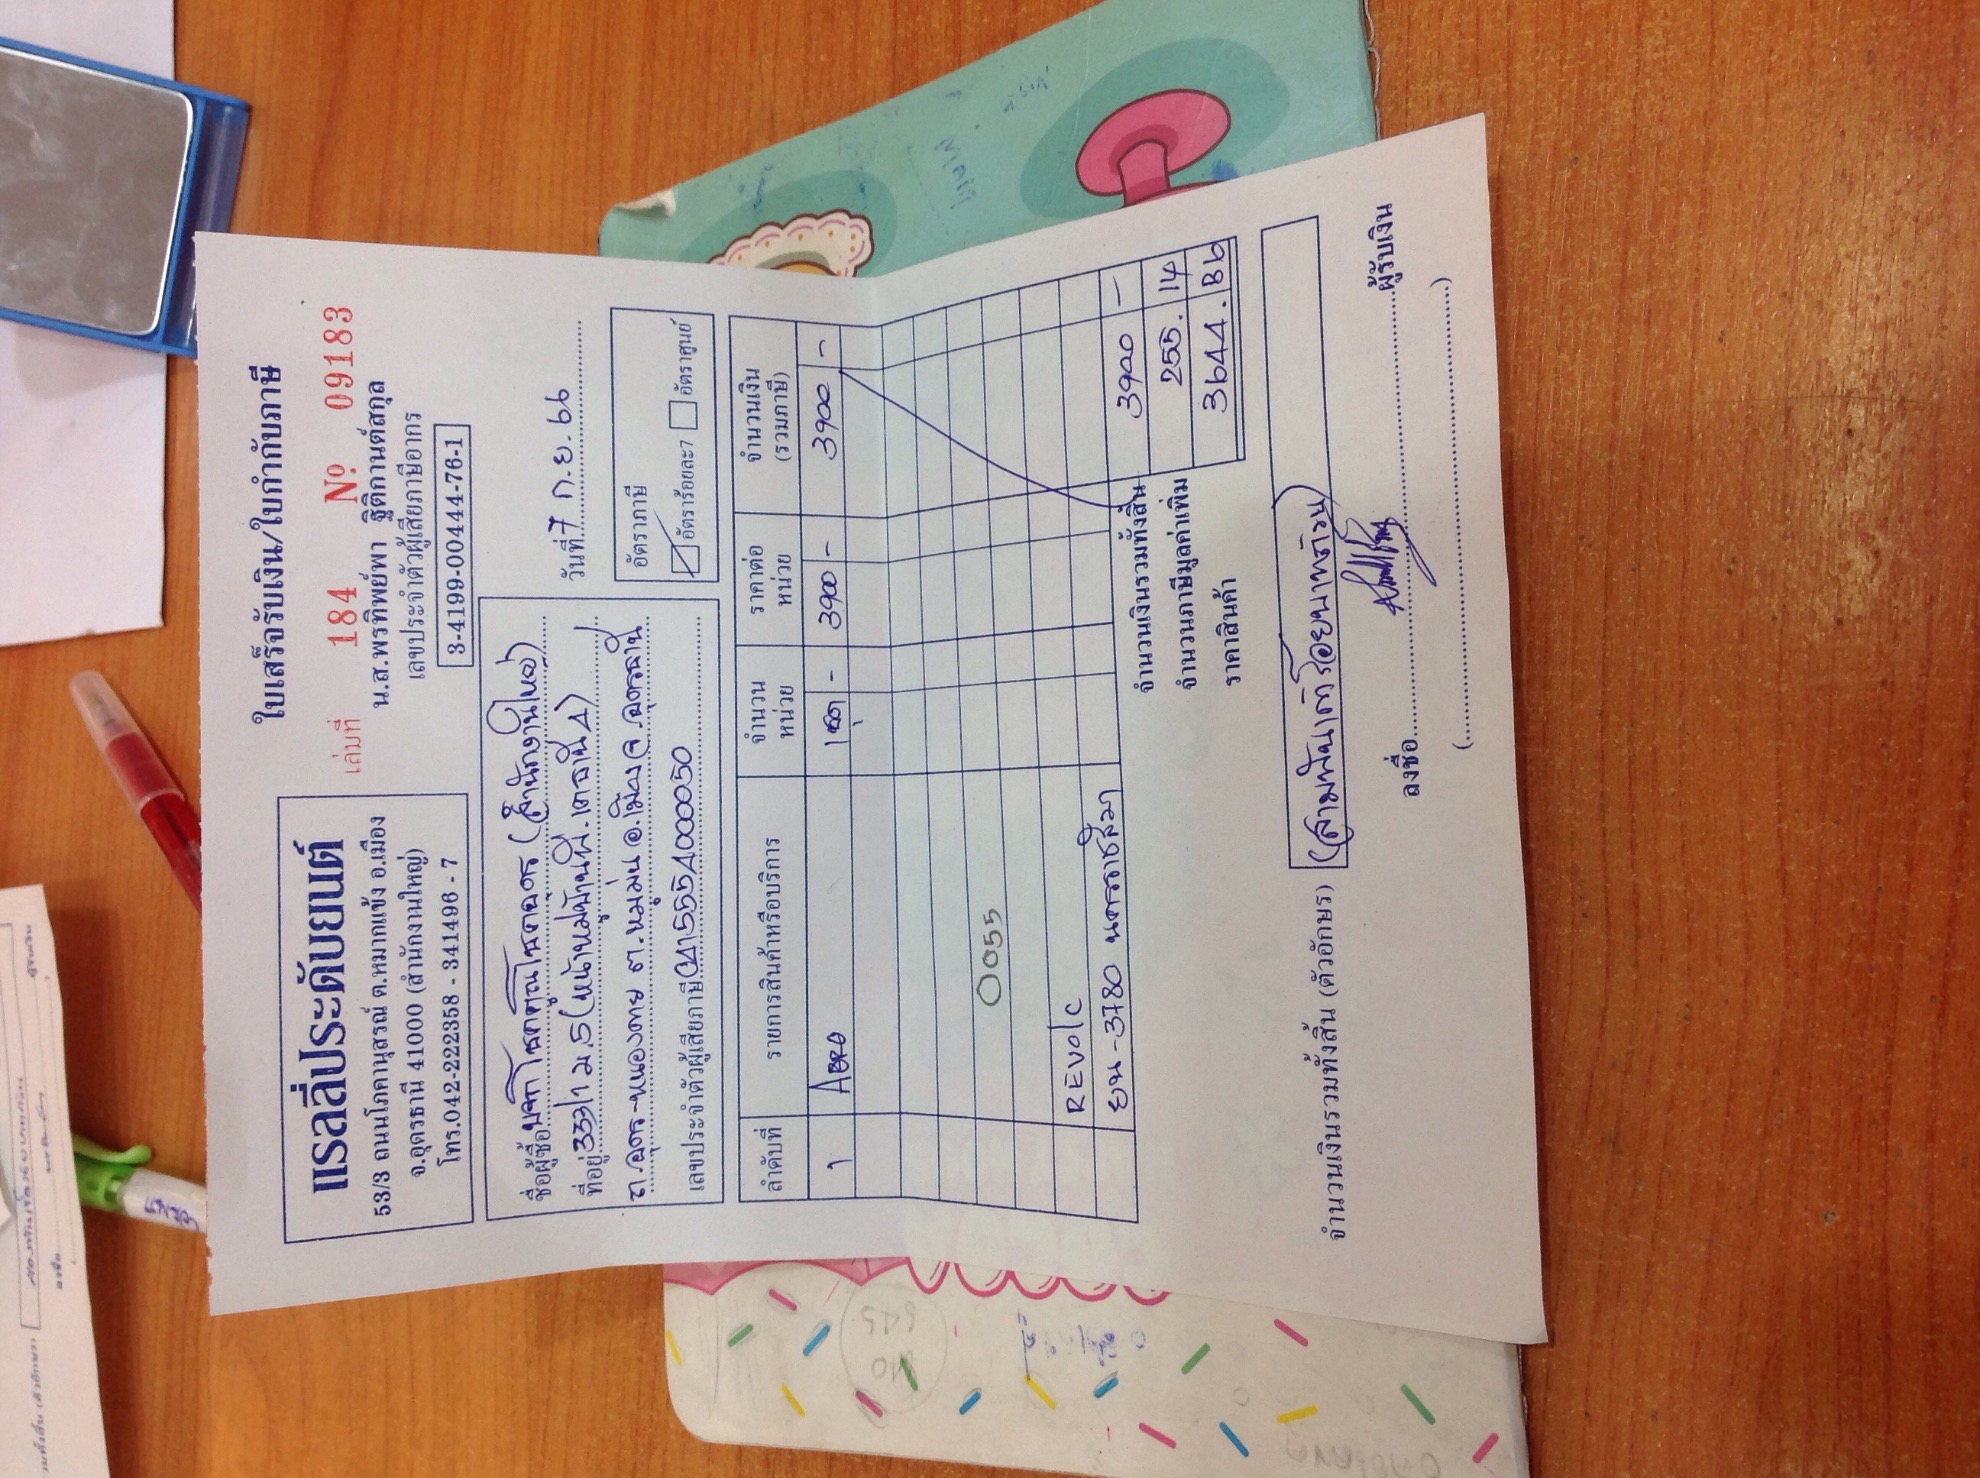 ใบเสร็จรับเงิน/ใบกำกับภาษี
แรลลี่ประดับยนต์
53/3 ถนนโภคานุสรณ์ ต.หมากแข้ง อ.เมือง
จ.อุดรธานี 41000 (สำนักงานใหญ่)
โทร.042-222358 - 341496 - 7
เล่มที่ 184 Nº 09183
น.ส.พรทิพย์พา ฐิติกานต์สกุล
เลขประจำตัวผู้เสียภาษีอากร
3-4199-00444-76-1
ชื่อผู้ซื้อ บจก โชคคูณโชคอุดร (สำนักงานใหญ่)
ที่อยู่ 333/1 ม.5 (หน้าหมู่บ้านพี.เคอาร์น 4)
ถ.อุดร-หนองตาย ต.หมูม่น อ.เมือง จ.อุดรธานี
เลขประจำตัวผู้เสียภาษี 0415554000050
วันที่ 7 ก.ย. 66
อัตราภาษี
อัตราร้อยละ7 อัตราศูนย์
ลำดับที่ รายการสินค้าหรือบริการ จำนวนหน่วย ราคาต่อหน่วย จำนวนเงิน (รวมภาษี)
1 ABRO 1 ชุด - 3900 - 3900 -
0055
REVOLC
ยน-3780 นครราชสีมา
จำนวนเงินรวมทั้งสิ้น 3900 -
จำนวนภาษีมูลค่าเพิ่ม 255.14
ราคาสินค้า 3644.86
จำนวนเงินรวมทั้งสิ้น (ตัวอักษร) (สามพันเก้าร้อยบาทถ้วน)
ลงชื่อ ผู้รับเงิน
( )